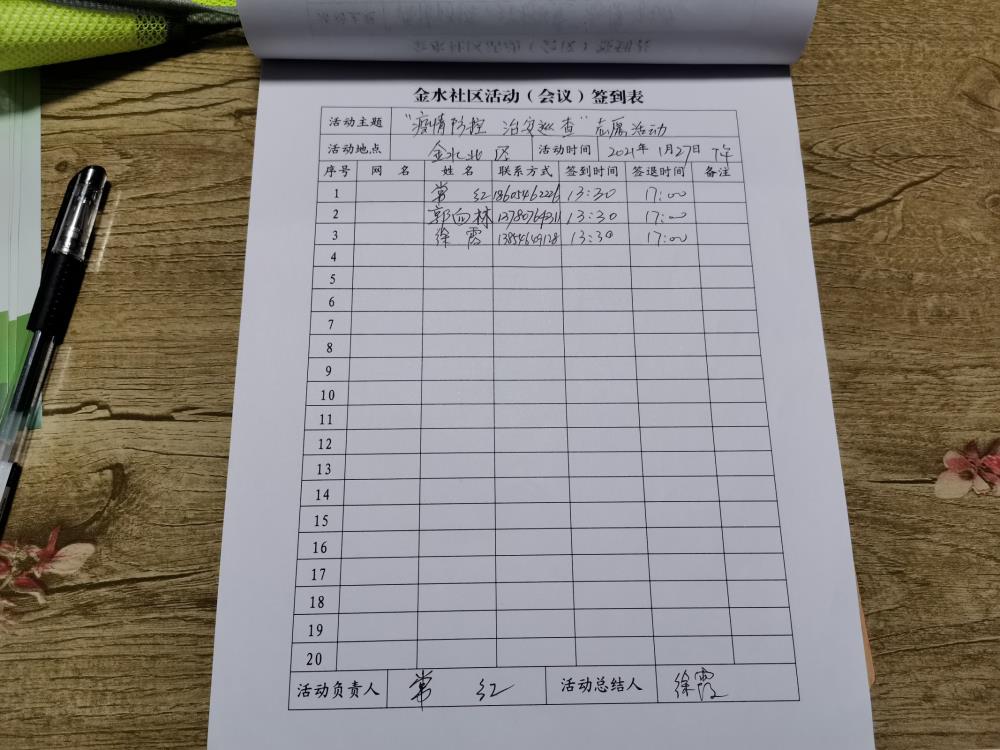 金水社区活动（会议）签到表
活动主题 "疫情防控 治安巡查"志愿活动
活动地点 金水北区 活动时间 2021年1月27日 下午
序号 网 名 姓 名 联系方式 签到时间 签退时间 备注
1 常 红 18605462226 13:30 17:00
2 郭向林 13780764311 13:30 17:00
3 徐霞 13854649128 13:30 17:00
4
5
6
7
8
9
10
11
12
13
14
15
16
17
18
19
20
活动负责人 常 红 活动总结人 徐霞